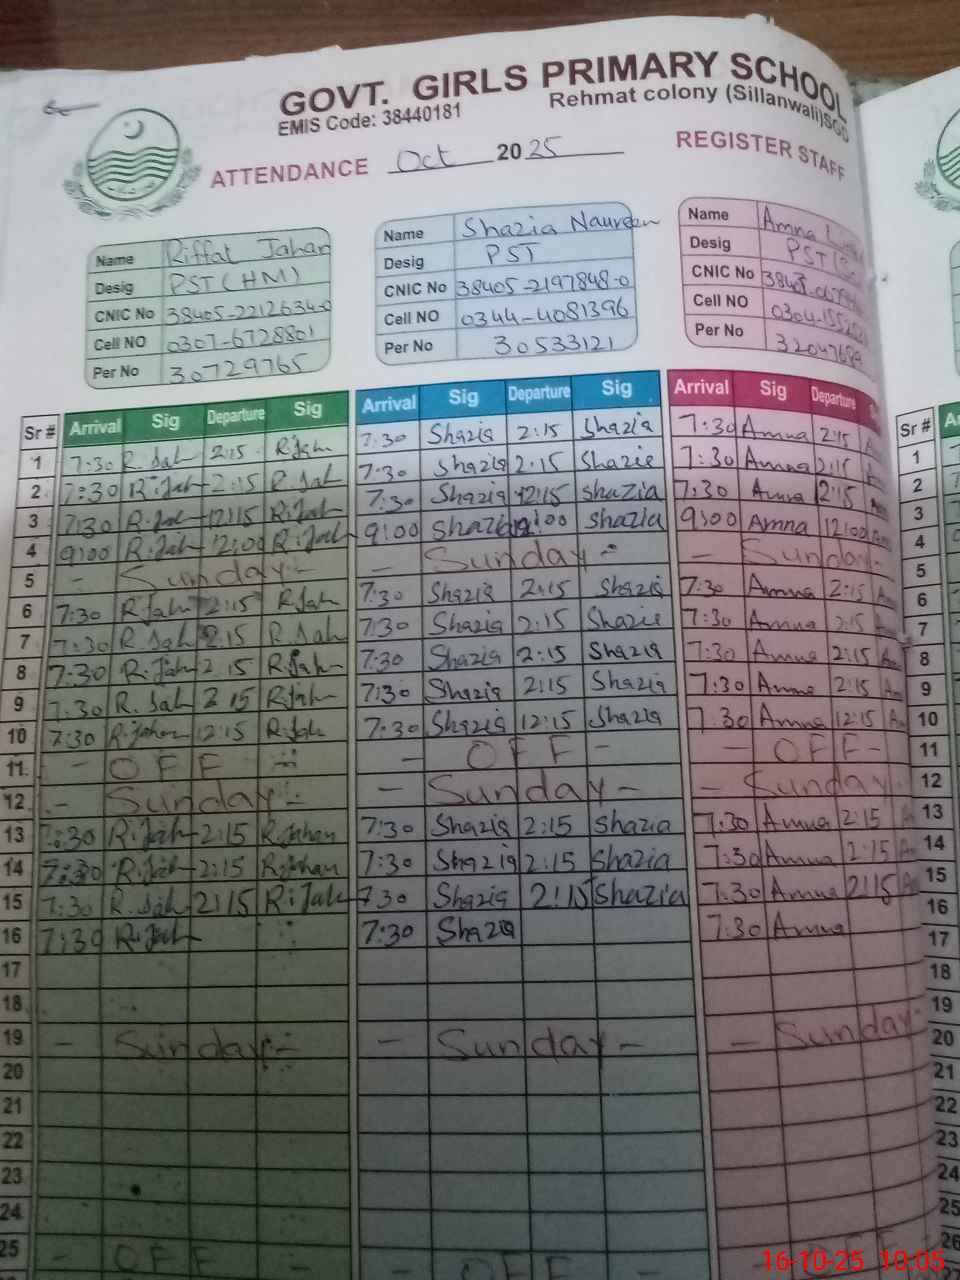 GOVT. GIRLS PRIMARY SCHOOL
EMIS Code: 38440181 Rehmat colony (Sillanwali)SGD
ATTENDANCE Oct 2025 REGISTER STAFF
Name Riffat Jahan Name Shazia Naureen Name Amna
Desig PST (HM) Desig PST Desig PST
CNIC No 38405-2212634-0 CNIC No 38405-2197848-0 CNIC No
Cell NO 0307-6728801 Cell NO 0344-4081396 Cell NO
Per No 30729765 Per No 30533121 Per No
Sr # Arrival Sig Departure Sig Arrival Sig Departure Sig Arrival Sig Departure Sr #
1 7:30 R.Jah 2:15 R.Jah 7:30 Shazia 2:15 Shazia 7:30 Amna 2:15 1
2 7:30 R.Jah 2:15 R.Jah 7:30 Shazia 2:15 Shazia 7:30 Amna 2:15 2
3 7:30 R.Jah 12:15 R.Jah 7:30 Shazia 12:15 Shazia 7:30 Amna 12:15 3
4 9:00 R.Jah 12:00 R.Jah 9:00 Shazia 12:00 Shazia 9:00 Amna 12:00 4
5 - Sunday - - Sunday - - Sunday - 5
6 7:30 R.Jah 2:15 R.Jah 7:30 Shazia 2:15 Shazia 7:30 Amna 2:15 6
7 7:30 R.Jah 2:15 R.Jah 7:30 Shazia 2:15 Shazia 7:30 Amna 2:15 7
8 7:30 R.Jah 2:15 R.Jah 7:30 Shazia 2:15 Shazia 7:30 Amna 2:15 8
9 7:30 R.Jah 2:15 R.Jah 7:30 Shazia 2:15 Shazia 7:30 Amna 2:15 9
10 7:30 R.Jahan 12:15 R.Jah 7:30 Shazia 12:15 Shazia 7:30 Amna 12:15 10
11 - OFF - - OFF - - OFF - 11
12 - Sunday - - Sunday - - Sunday - 12
13 7:30 R.Jah 2:15 R.Jahan 7:30 Shazia 2:15 Shazia 7:30 Amna 2:15 13
14 7:30 R.Jah 2:15 R.Jahan 7:30 Shazia 2:15 Shazia 7:30 Amna 2:15 14
15 7:30 R.Jah 2:15 R.Jah 7:30 Shazia 2:15 Shazia 7:30 Amna 2:15 15
16 7:30 R.Jah 7:30 Shazia 7:30 Amna 16
17 17
18 18
19 - Sunday - - Sunday - - Sunday - 19
20 20
21 21
22 22
23 23
24 24
25 - OFF - OFF - 25
26
16-10-25 10:05